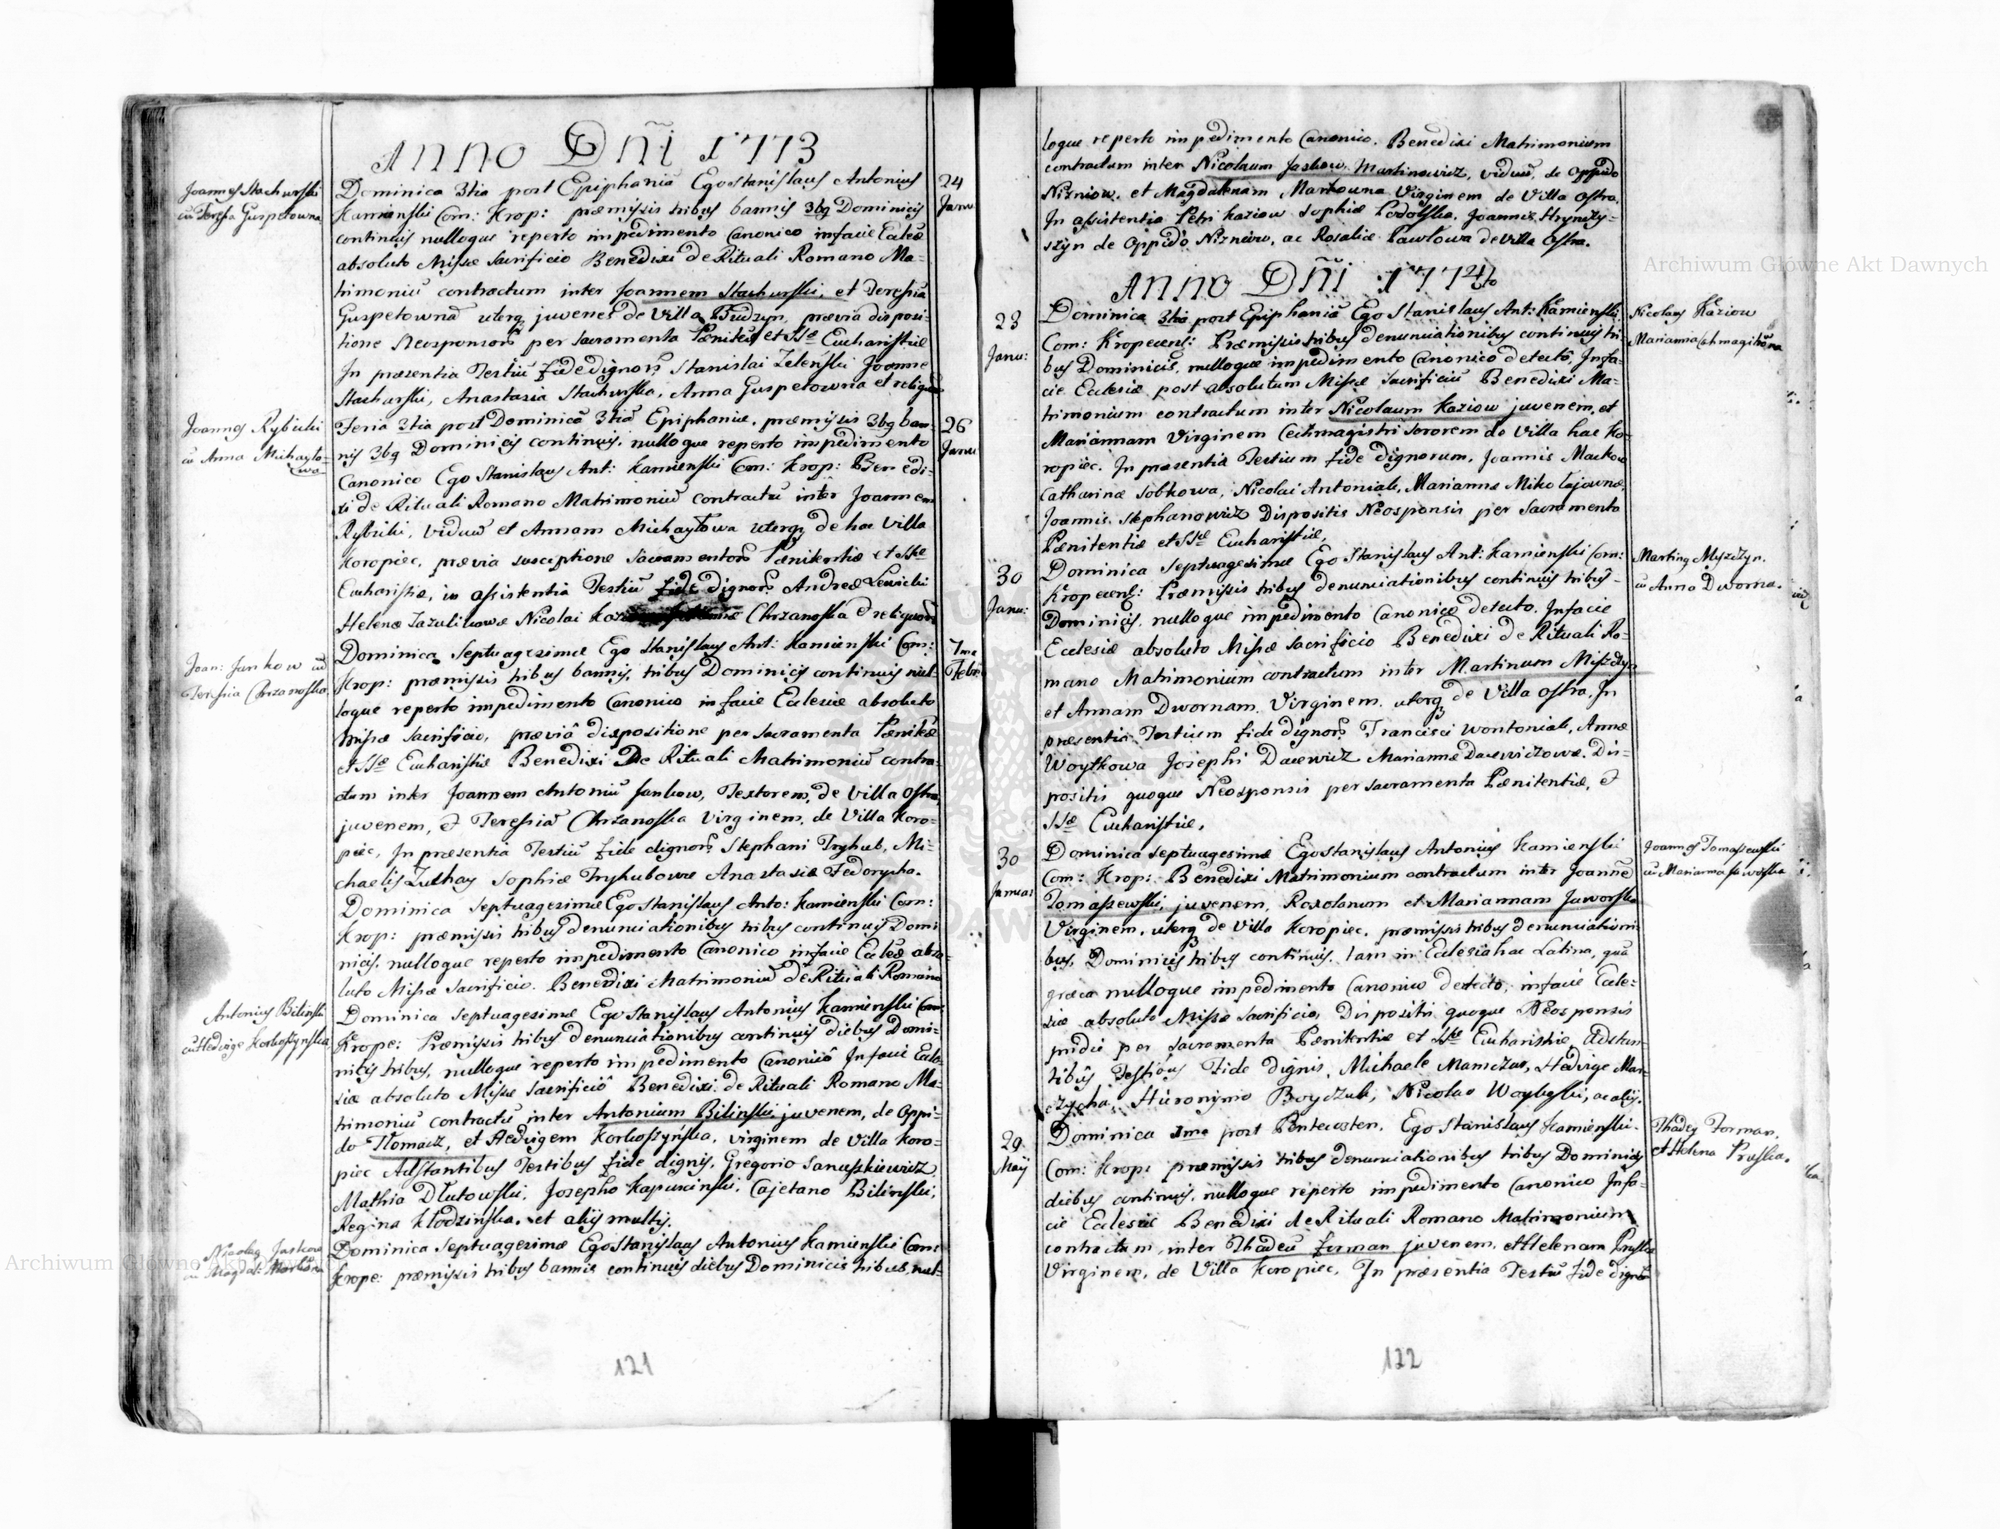 Anno Dñi 1773
Joannes Stachurski
cū Teresa Guspetowna
24
Janu:
Dominica 3tia post Epiphaniā Ego Stanislaus Antonius
Kamienski Com: Krop: præmissis tribus bannis 3bq Dominicis
continuis nulloque reperto impedimento Canonico in facie Eccleæ
absoluto Missæ Sacrificio Benedixi de Rituali Romano Ma-
trimoniū contractum inter Joannem Stachurski, et Teressia
Guspetownā uterq juvenes de Villa prævia disposi-
tione Neosponsorū per Sacramenta Pænitæ et SSæ Euchæristiæ
In præsentia Testiū fide dignorū Stanislai Zelenski Joanne
Stachurski, Anastazia Stachurska, Anna Guspetowna et reliquis
Joannes Rybicki
cū Anna Michayło-
wa
26
Janu:
Feria 3tia post Dominicā 3tiā Epiphaniæ, præmissis 3bq ban-
nis 3bq Dominicis continuis, nulloque reperto impedimento
Canonico Ego Stanislaus Ant: Kamienski Com: Krop: Benedi-
xi de Rituali Romano Matrimoniū contractū inter Joannem
Rybicki, viduū et Annam Michayłowa uterq de hac Villa
Koropiec, prævia susceptione Sacramentorū Pænitentiæ et SSæ
Eucharistiæ, in assistentia Testiū fide dignorū Andreæ Lewicki
Helenæ Nicolai Chrzanoska et reliquorū
Joan: Jankow cū
Teressia Chrzanoska
7ma
Febr:
Dominica Septuagesimæ Ego Stanislaus Ant: Kamienski Com:
Krop: præmissis tribus bannis, tribus Dominicis continuis nul-
loque reperto impedimento Canonico in facie Eclesiæ absoluto
Missæ Sacrificio, præviâ dispositione per Sacramenta Pænitæ
et SSæ Eucharistiæ Benedixi De Rituali Matrimoniū contra-
ctum inter Joannem Antoniū Jankow, Textorem, de Villa Ostra,
juvenem, et Teressiā Chrzanoska Virginem, de Villa Koro-
piec, In præsentia Testiū fide dignorū Stephani Tryhub, Mi-
chaelis Sophiæ Tryhubowæ Anastasiæ Fedorycha.
Dominica Septuagesimæ Ego Stanislaus Anto: Kamienski Com:
Krop: præmissis tribus denunciationibus tribus continuis Domi-
nicis, nulloque reperto impedimento Canonico in facie Eccleæ abso-
luto Missæ Sacrificio. Benedixi Matrimoniū de Rituali Romano
Antonius Bilinski
cū Hedvige Korboszynska
Dominica Septuagesimæ Ego Stanislaus Antonius Kamienski Com:
Krope: Præmissis tribus denunciationibus continuis diebus Domi-
nicis tribus, nulloque reperto impedimento Canonicô In facie Ecle-
siæ absoluto Missæ Sacrificiô Benedixi de Rituali Romano Ma-
trimoniū contractū inter Antonium Bilinski juvenem, de Oppi-
do Tłomacz, et Hedvigem Korboszyńska, virginem de Villa Koro-
piec Adstantibus Testibus fide dignis, Gregorio Januszkiewicz
Mathia Dłutowski, Josepho Kapuscinski, Cajetano Bilinski,
Regina Kłodzinska, et aliis multis.
Nicolaus Jaskow
cū Magdal: Markowna
Dominica Septuagesimæ Ego Stanislaus Antonius Kamienski Com:
Krope: præmissis tribus bannis continuis diebus Dominicis tribus, nul-
121
loque reperto impedimento Canonico, Benedixi Matrimonium
contractum inter Nicolaum Jaskow Martinowicz, viduū, de Oppido
Nizniow, et Magdalenam Markowna Virginem de Villa Ostra,
In assistentia Petri Kaziow Sophiæ Podolska, Joannis Hrynczy-
szyn de Oppidô Nizniów, ac Rosaliæ Pawłowa de Villa Ostra.
Anno Dñi 1774to
23
Janu:
Nicolaus Kaziow
Marianna Cechmagistrowna
Dominica 3tia post Epiphaniā Ego Stanislaus Ant: Kamienski
Com: Kropecens: Præmissis tribus denunciationibus continuis tri-
bus Dominicis, nulloque impedimento Canonico detectô, In fa-
cie Eclesiæ post absolutum Missæ Sacrificiū Benedixi Ma-
trimonium contractum inter Nicolaum Kaziow juvenem, et
Mariannam Virginem Cechmagistri Sororem de Villa hac Ko-
ropiec. In præsentia Testium fide dignorum, Joannis Markow
Catharinæ Sobkowa, Nicolai Antoniak, Mariannæ Mikołajowna,
Joannis Stephanowicz Dispositis Neosponsis per Sacramento
Pænitentiæ et SSæ Eucharistiæ,
30
Janu:
Martinus Miszczyn
cū Anna Dworna.
Dominica Septuagesimæ Ego Stanislaus Ant: Kamienski Com:
Kropecens: Præmissis tribus denunciationibus continuis tribus
Dominicis, nulloque impedimento Canonico detecto. In facie
Eclesiæ absoluto Missæ Sacrificio Benedixi de Rituali Ro-
mano Matrimonium contractum inter Martinum Miszczyn
et Annam Dwornam Virginem, uterq de Villa Ostra, In
præsentia Testium fide dignorū Francisci Wontoniak, Annæ
Woytkowa Josephi Dacewicz Mariannæ Dacewiczowæ. Dis-
positis quoque Neosponsis per Sacramenta Pænitentiæ, et
SSæ Eucharistiæ,
30
Januar:
Joannes Tomaszewski
cū Marianna Jaworska
Dominica Septuagesimæ Ego Stanislaus Antonius Kamienski
Com: Krop: Benedixi Matrimonium contractum inter Joannē
Tomaszewski, juvenem, Roxolanum et Mariannam Jaworska
Virginem, uterq de Villa Koropiec, præmissis tribus denunciationi-
bus, Dominicis tribus continuis, tam in Eclesia hac Latina, quā
græca nulloque impedimento Canonico detecto, in facie Ecle-
siæ absoluto Missæ Sacrificio, Dispositis quoque Neosponsis
pridie per Sacramenta Pænitentiæ et SSæ Eucharistiæ, Adstan-
tibus Testibus Fide dignis, Michaele Manczur, Hedvige Man-
czycha, Hieronymo Boyczuk, Nicolao Woytyski, ac aliis.
29
Maij
Thadeus Forman,
et Helena Pruska.
Dominica 1ma post Pentecosten, Ego Stanislaus Kamienski
Com: Krop: præmissis tribus denunciationibus tribus Dominicis
diebus continuis, nulloque reperto impedimento Canonico In fa-
cie Eclesiæ Benedixi de Rituali Romano Matrimonium
contractum, inter Thadeū Forman juvenem, et Helenam Pruska
Virginem, de Villa Koropiec, In præsentia Testiū fide dignorū
122
Archiwum Główne Akt Dawnych
Archiwum Główne Akt Dawnych